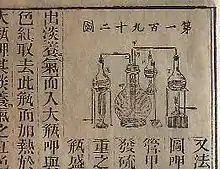 第一百九十二圖
又法
管甲
發硫
重之
瓶盛
出淡養氣而入大瓶呷與
色紅取去此瓶而加熱於
大瓶呷其淡養氣之